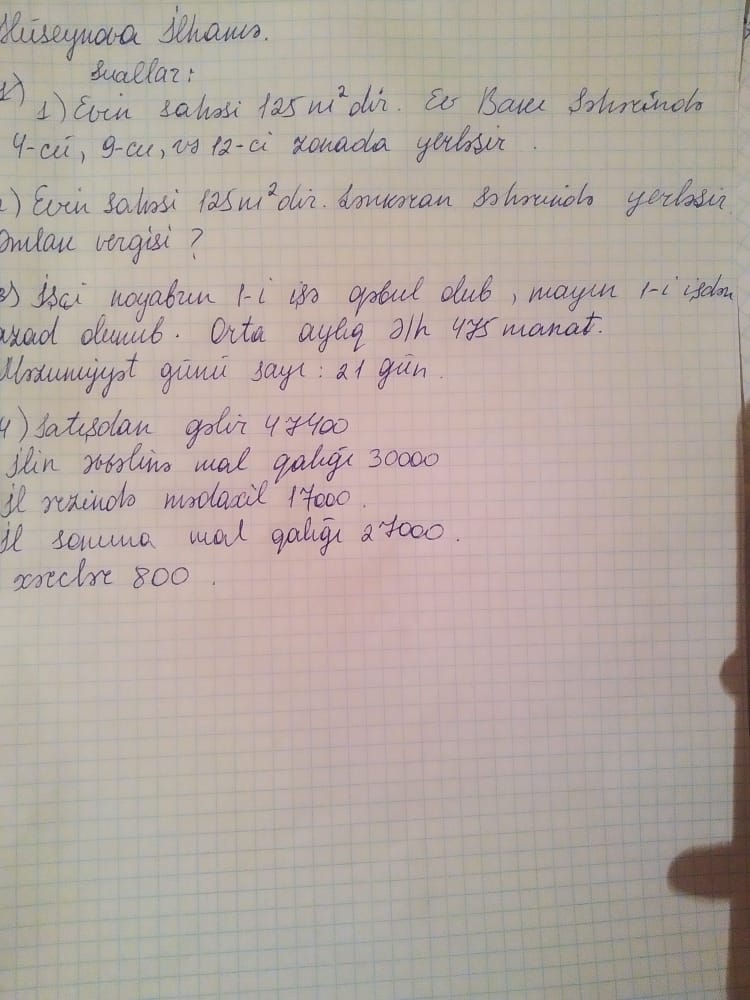 Hüseynova İlhamə.
Suallar:
1) Evin sahəsi 125 m² dir. Ev Bakı Şəhərində
4-cü, 9-cu, və 12-ci zonada yerləşir.
2) Evin sahəsi 125 m² dir. Lənkəran Şəhərində yerləşir
Əmlak vergisi ?
3) İşçi noyabrın 1-i işə qəbul olub, mayın 1-i işdən
azad olunub. Orta aylıq ə/h 475 manat.
Məzuniyyət günü sayı : 21 gün.
4) Satışdan gəlir 47400
İlin əvvəlinə mal qalığı 30000
İl ərzində mədaxil 17000.
İl sonuna mal qalığı 27000.
xərclər 800.